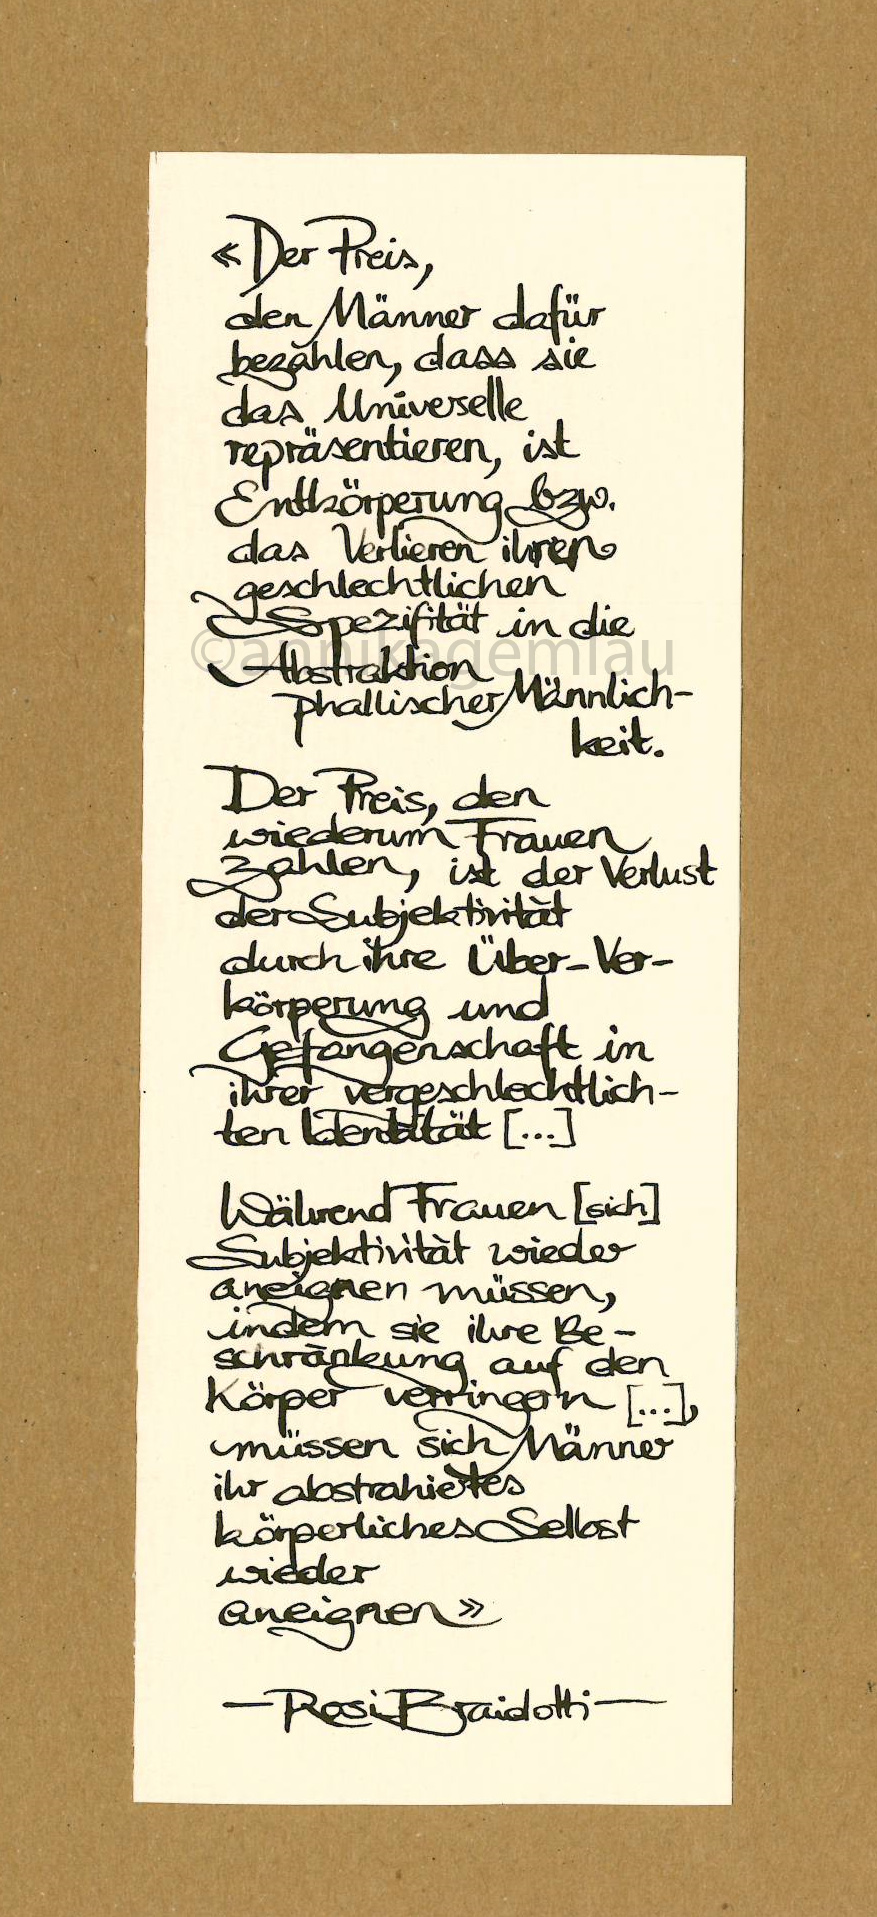 «Der Preis,
den Männer dafür
bezahlen, dass sie
das Universelle
repräsentieren, ist
Entkörperung bzw.
das Verlieren ihren
geschlechtlichen
Spezifität in die
©annikagemlau
Abstraktion
phallischer Männlich-
keit.
Der Preis, den
wiederum Frauen
zahlen, ist der Verlust
der Subjektivität
durch ihre Über-Ver-
körperung und
Gefangenschaft in
ihrer vergeschlechtlich-
ten Identität [...]
Während Frauen [sich]
Subjektivität wieder
aneignen müssen,
indem sie ihre Be-
schränkung auf den
Körper verringern [...],
müssen sich Männer
ihr abstrahiertes
körperliches Selbst
wieder
aneignen»
— Rosi Braidotti —